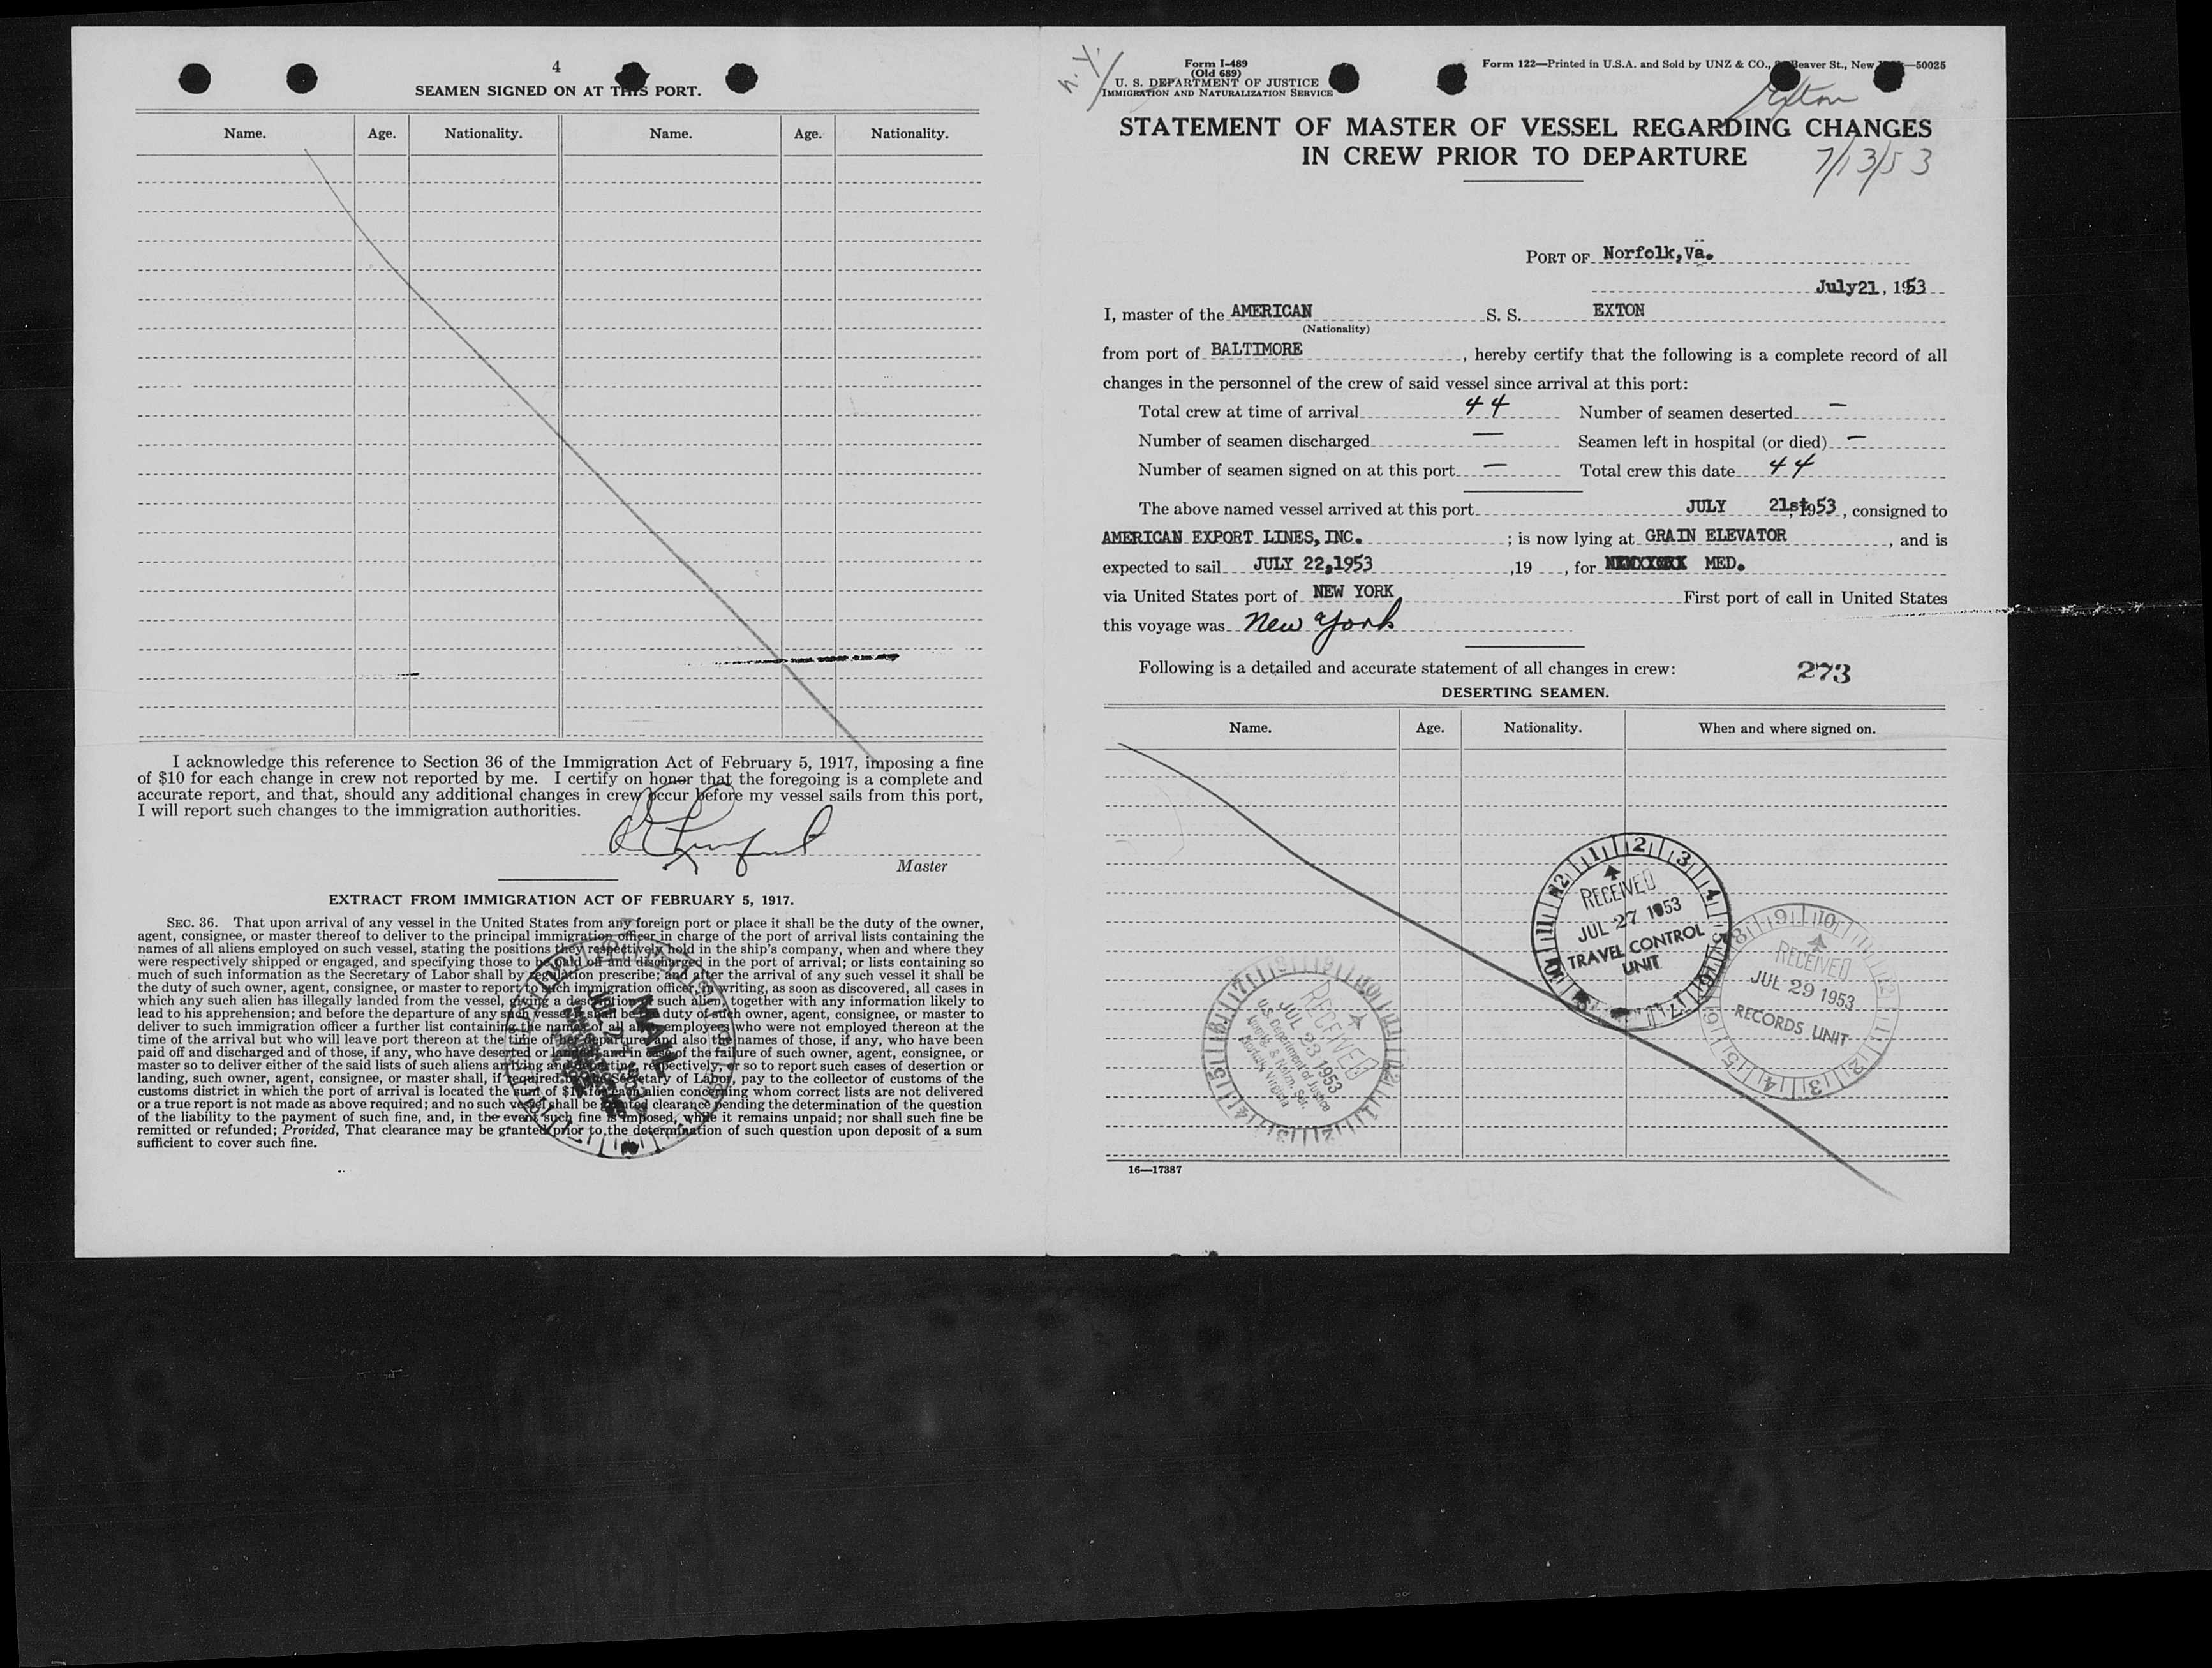 4
SEAMEN SIGNED ON AT THIS PORT.
Name. Age. Nationality. Name. Age. Nationality.
I acknowledge this reference to Section 36 of the Immigration Act of February 5, 1917, imposing a fine
of $10 for each change in crew not reported by me. I certify on honor that the foregoing is a complete and
accurate report, and that, should any additional changes in crew occur before my vessel sails from this port,
I will report such changes to the immigration authorities.
Master
EXTRACT FROM IMMIGRATION ACT OF FEBRUARY 5, 1917.
SEC. 36. That upon arrival of any vessel in the United States from any foreign port or place it shall be the duty of the owner,
agent, consignee, or master thereof to deliver to the principal immigration officer in charge of the port of arrival lists containing the
names of all aliens employed on such vessel, stating the positions they respectively hold in the ship's company, when and where they
were respectively shipped or engaged, and specifying those to be paid off and discharged in the port of arrival; or lists containing so
much of such information as the Secretary of Labor shall by regulation prescribe; and after the arrival of any such vessel it shall be
the duty of such owner, agent, consignee, or master to report to such immigration officer, in writing, as soon as discovered, all cases in
which any such alien has illegally landed from the vessel, giving a description of such alien, together with any information likely to
lead to his apprehension; and before the departure of any such vessel it shall be the duty of such owner, agent, consignee, or master to
deliver to such immigration officer a further list containing the names of all alien employees who were not employed thereon at the
time of the arrival but who will leave port thereon at the time of her departure, and also the names of those, if any, who have been
paid off and discharged and of those, if any, who have deserted or landed; and in case of the failure of such owner, agent, consignee, or
master so to deliver either of the said lists of such aliens arriving and departing, respectively, or so to report such cases of desertion or
landing, such owner, agent, consignee, or master shall, if required by the Secretary of Labor, pay to the collector of customs of the
customs district in which the port of arrival is located the sum of $10 for each alien concerning whom correct lists are not delivered
or a true report is not made as above required; and no such vessel shall be granted clearance pending the determination of the question
of the liability to the payment of such fine, and, in the event such fine is imposed, while it remains unpaid; nor shall such fine be
remitted or refunded; Provided, That clearance may be granted prior to the determination of such question upon deposit of a sum
sufficient to cover such fine.
MAIL
N.Y.
Form I-489
(Old 689)
U. S. DEPARTMENT OF JUSTICE
IMMIGRATION AND NATURALIZATION SERVICE
Form 122—Printed in U.S.A. and Sold by UNZ & CO., Beaver St., New —50025
Exton
STATEMENT OF MASTER OF VESSEL REGARDING CHANGES
IN CREW PRIOR TO DEPARTURE
7/13/53
PORT OF Norfolk,Va.
July21, 1953
I, master of the AMERICAN S. S. EXTON
(Nationality)
from port of BALTIMORE , hereby certify that the following is a complete record of all
changes in the personnel of the crew of said vessel since arrival at this port:
Total crew at time of arrival 44 Number of seamen deserted —
Number of seamen discharged — Seamen left in hospital (or died) —
Number of seamen signed on at this port — Total crew this date 44
The above named vessel arrived at this port JULY 21st,1953, consigned to
AMERICAN EXPORT LINES, INC. ; is now lying at GRAIN ELEVATOR , and is
expected to sail JULY 22,1953 ,19 , for MED.
via United States port of NEW YORK First port of call in United States
this voyage was New York
Following is a detailed and accurate statement of all changes in crew: 273
DESERTING SEAMEN.
Name. Age. Nationality. When and where signed on.
RECEIVED
JUL 27 1953
TRAVEL CONTROL
UNIT
RECEIVED
JUL 29 1953
RECORDS UNIT
RECEIVED
JUL 23 1953
U.S. Department of Justice
Immig. & Natzn. Ser.
Norfolk, Virginia
16—17387